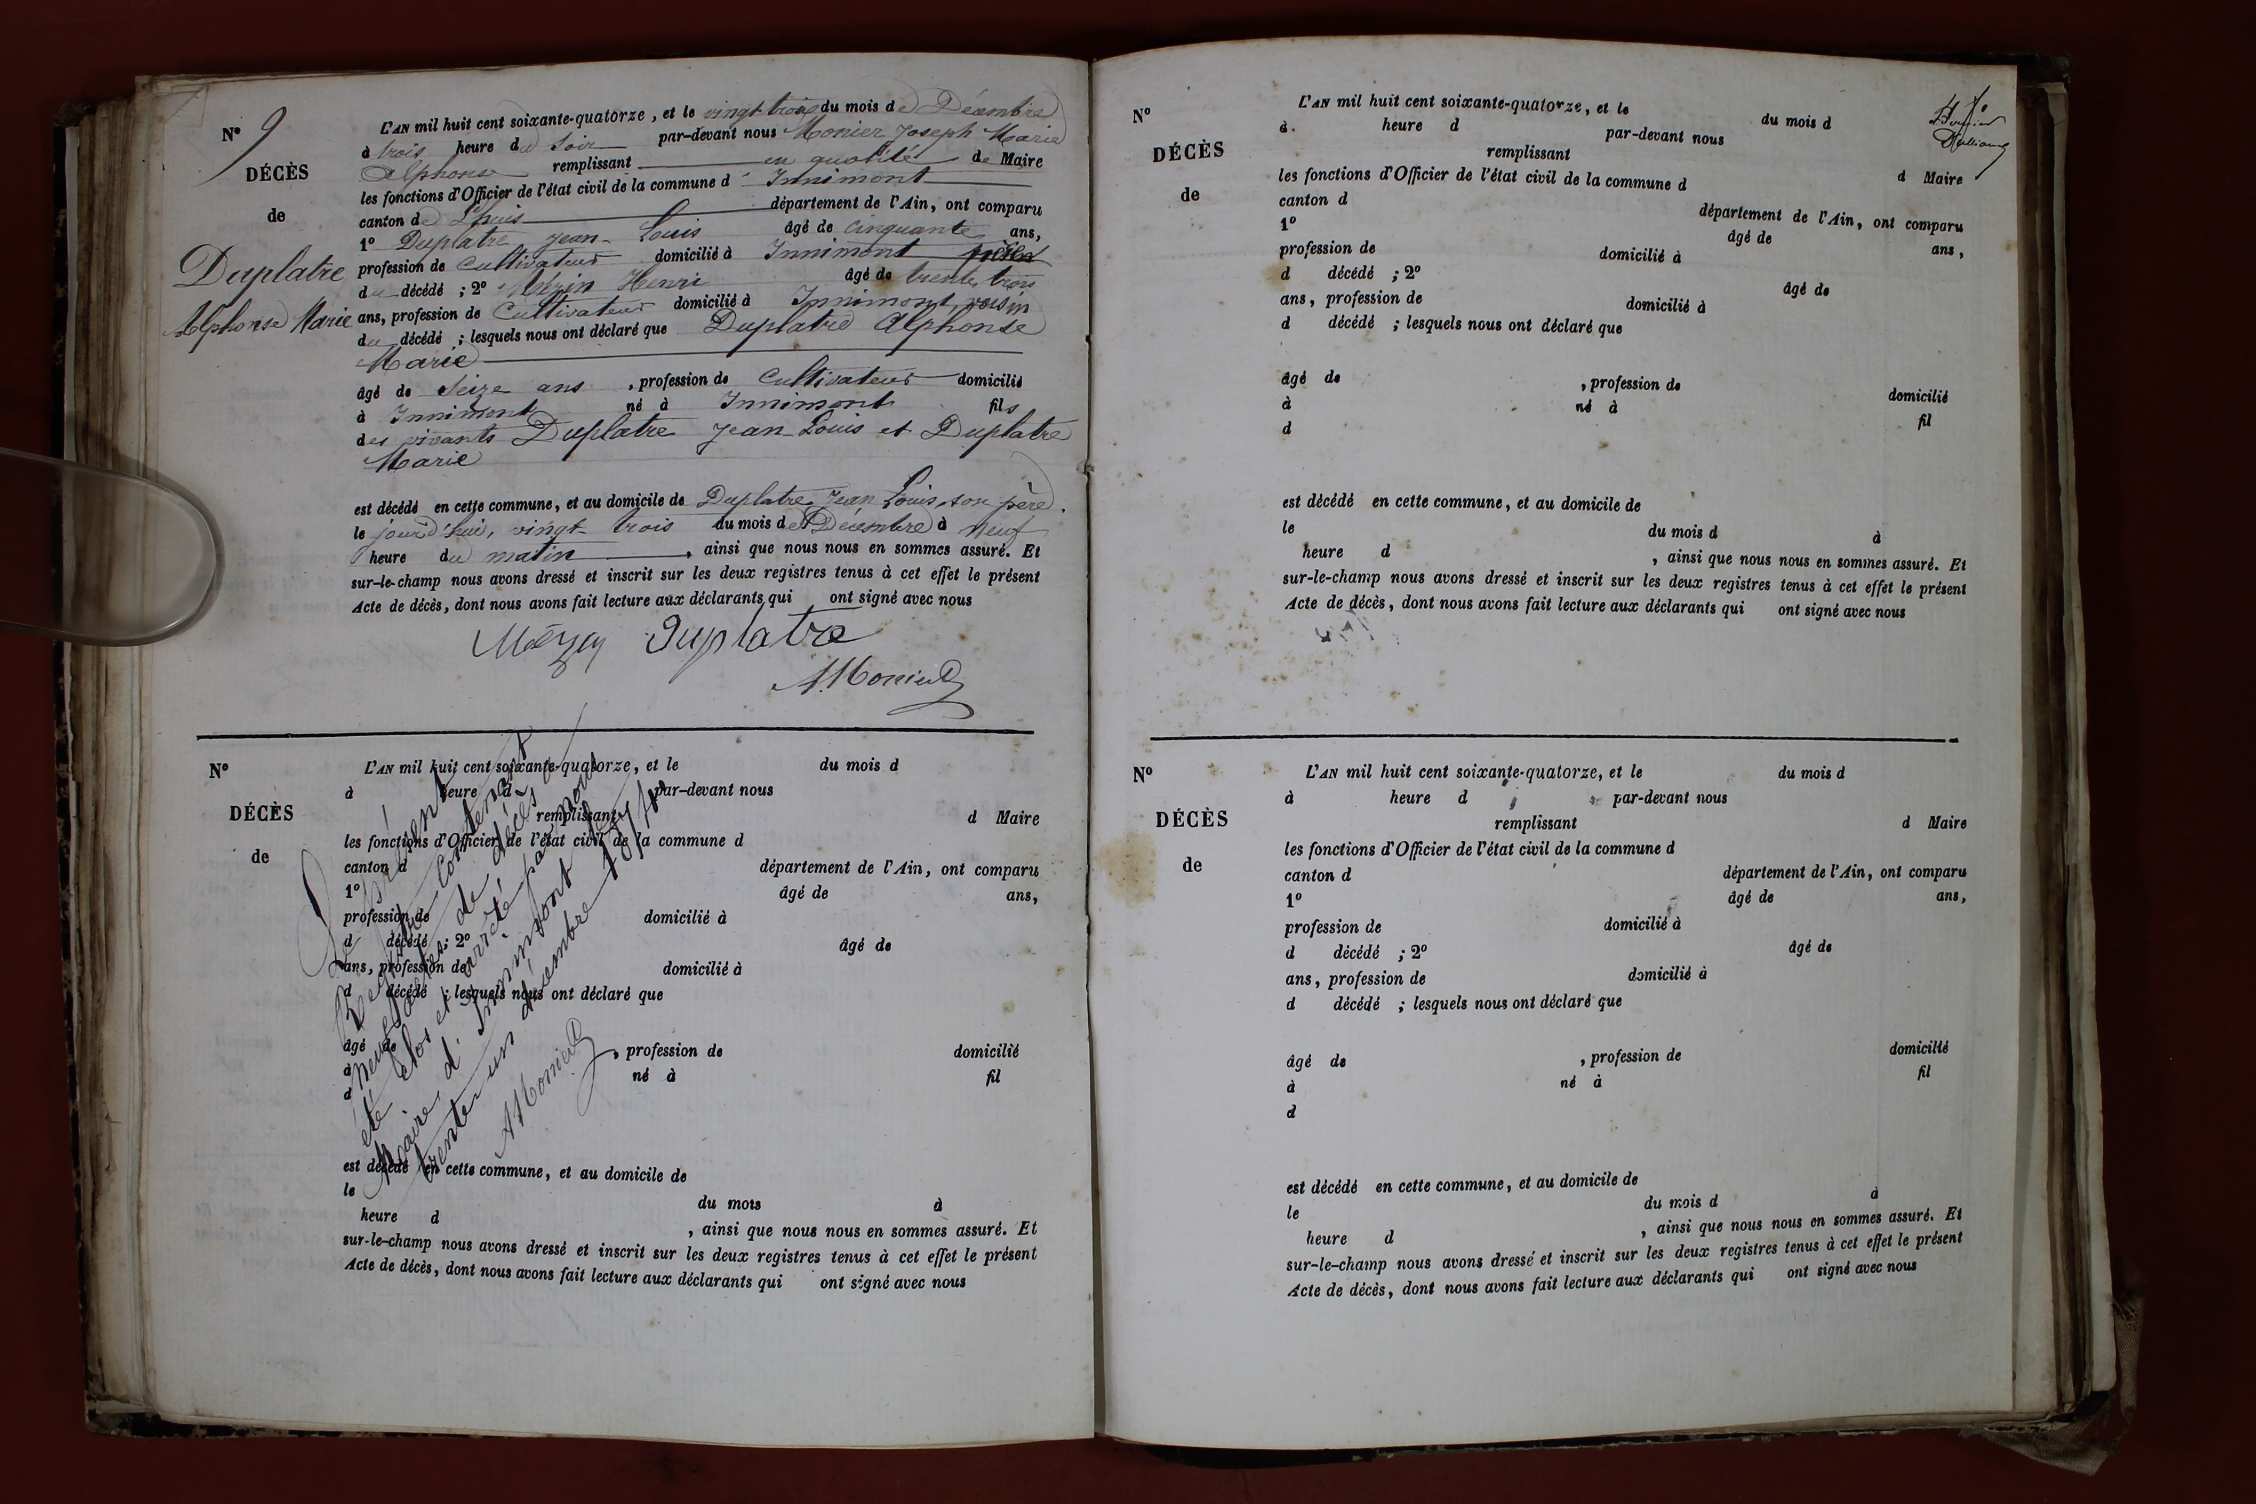 N° 9
DÉCÈS
de
Duplatre
Alphonse Marie
L'AN mil huit cent soixante-quatorze, et le vingt trois du mois de Décembre
à trois heure du Soir par-devant nous Monier Joseph Marie
Alphonse remplissant en qualité de Maire
les fonctions d'Officier de l'état civil de la commune d' Innimont
canton de Lhuis département de l'Ain, ont comparu
1° Duplatre Jean-Louis âgé de Cinquante ans,
profession de Cultivateur domicilié à Innimont père
du décédé ; 2° Henri âgé de trente trois
ans, profession de Cultivateur domicilié à Innimont, voisin
du décédé ; lesquels nous ont déclaré que Duplatre Alphonse
Marie
âgé de Seize ans , profession de Cultivateur domicilié
à Innimont né à Innimont fils
des vivants Duplatre Jean-Louis et Duplatre
Marie
est décédé en cette commune, et au domicile de Duplatre Jean Louis, son père.
le jourd'hui, vingt trois du mois de Décembre à neuf
heure du matin , ainsi que nous nous en sommes assuré. Et
sur-le-champ nous avons dressé et inscrit sur les deux registres tenus à cet effet le présent
Acte de décès, dont nous avons fait lecture aux déclarants qui ont signé avec nous
Duplatre
A Monier
N°
DÉCÈS
de
L'AN mil huit cent soixante-quatorze, et le du mois d
à heure d par-devant nous
remplissant d Maire
les fonctions d'Officier de l'état civil de la commune d
canton d département de l'Ain, ont comparu
1° âgé de ans,
profession de domicilié à
d décédé ; 2° âgé de
ans, profession de domicilié à
d décédé ; lesquels nous ont déclaré que
âgé de , profession de domicilié
à né à fil
d
est décédé en cette commune, et au domicile de
le du mois à
heure d , ainsi que nous nous en sommes assuré. Et
sur-le-champ nous avons dressé et inscrit sur les deux registres tenus à cet effet le présent
Acte de décès, dont nous avons fait lecture aux déclarants qui ont signé avec nous
Le présent
Registre contenant
neuf actes de décès a
été clos et arrêté par nous
Maire d'Innimont le
trente un décembre 1874
A Monier
N°
DÉCÈS
de
L'AN mil huit cent soixante-quatorze, et le du mois d
à heure d par-devant nous
remplissant d Maire
les fonctions d'Officier de l'état civil de la commune d
canton d département de l'Ain, ont comparu
1° âgé de ans,
profession de domicilié à
d décédé ; 2° âgé de
ans, profession de domicilié à
d décédé ; lesquels nous ont déclaré que
âgé de , profession de domicilié
à né à fil
d
est décédé en cette commune, et au domicile de
le du mois d à
heure d , ainsi que nous nous en sommes assuré. Et
sur-le-champ nous avons dressé et inscrit sur les deux registres tenus à cet effet le présent
Acte de décès, dont nous avons fait lecture aux déclarants qui ont signé avec nous
N°
DÉCÈS
de
L'AN mil huit cent soixante-quatorze, et le du mois d
à heure d par-devant nous
remplissant d Maire
les fonctions d'Officier de l'état civil de la commune d
canton d département de l'Ain, ont comparu
1° âgé de ans,
profession de domicilié à
d décédé ; 2° âgé de
ans, profession de domicilié à
d décédé ; lesquels nous ont déclaré que
âgé de , profession de domicilié
à né à fil
d
est décédé en cette commune, et au domicile de
le du mois d à
heure d , ainsi que nous nous en sommes assuré. Et
sur-le-champ nous avons dressé et inscrit sur les deux registres tenus à cet effet le présent
Acte de décès, dont nous avons fait lecture aux déclarants qui ont signé avec nous